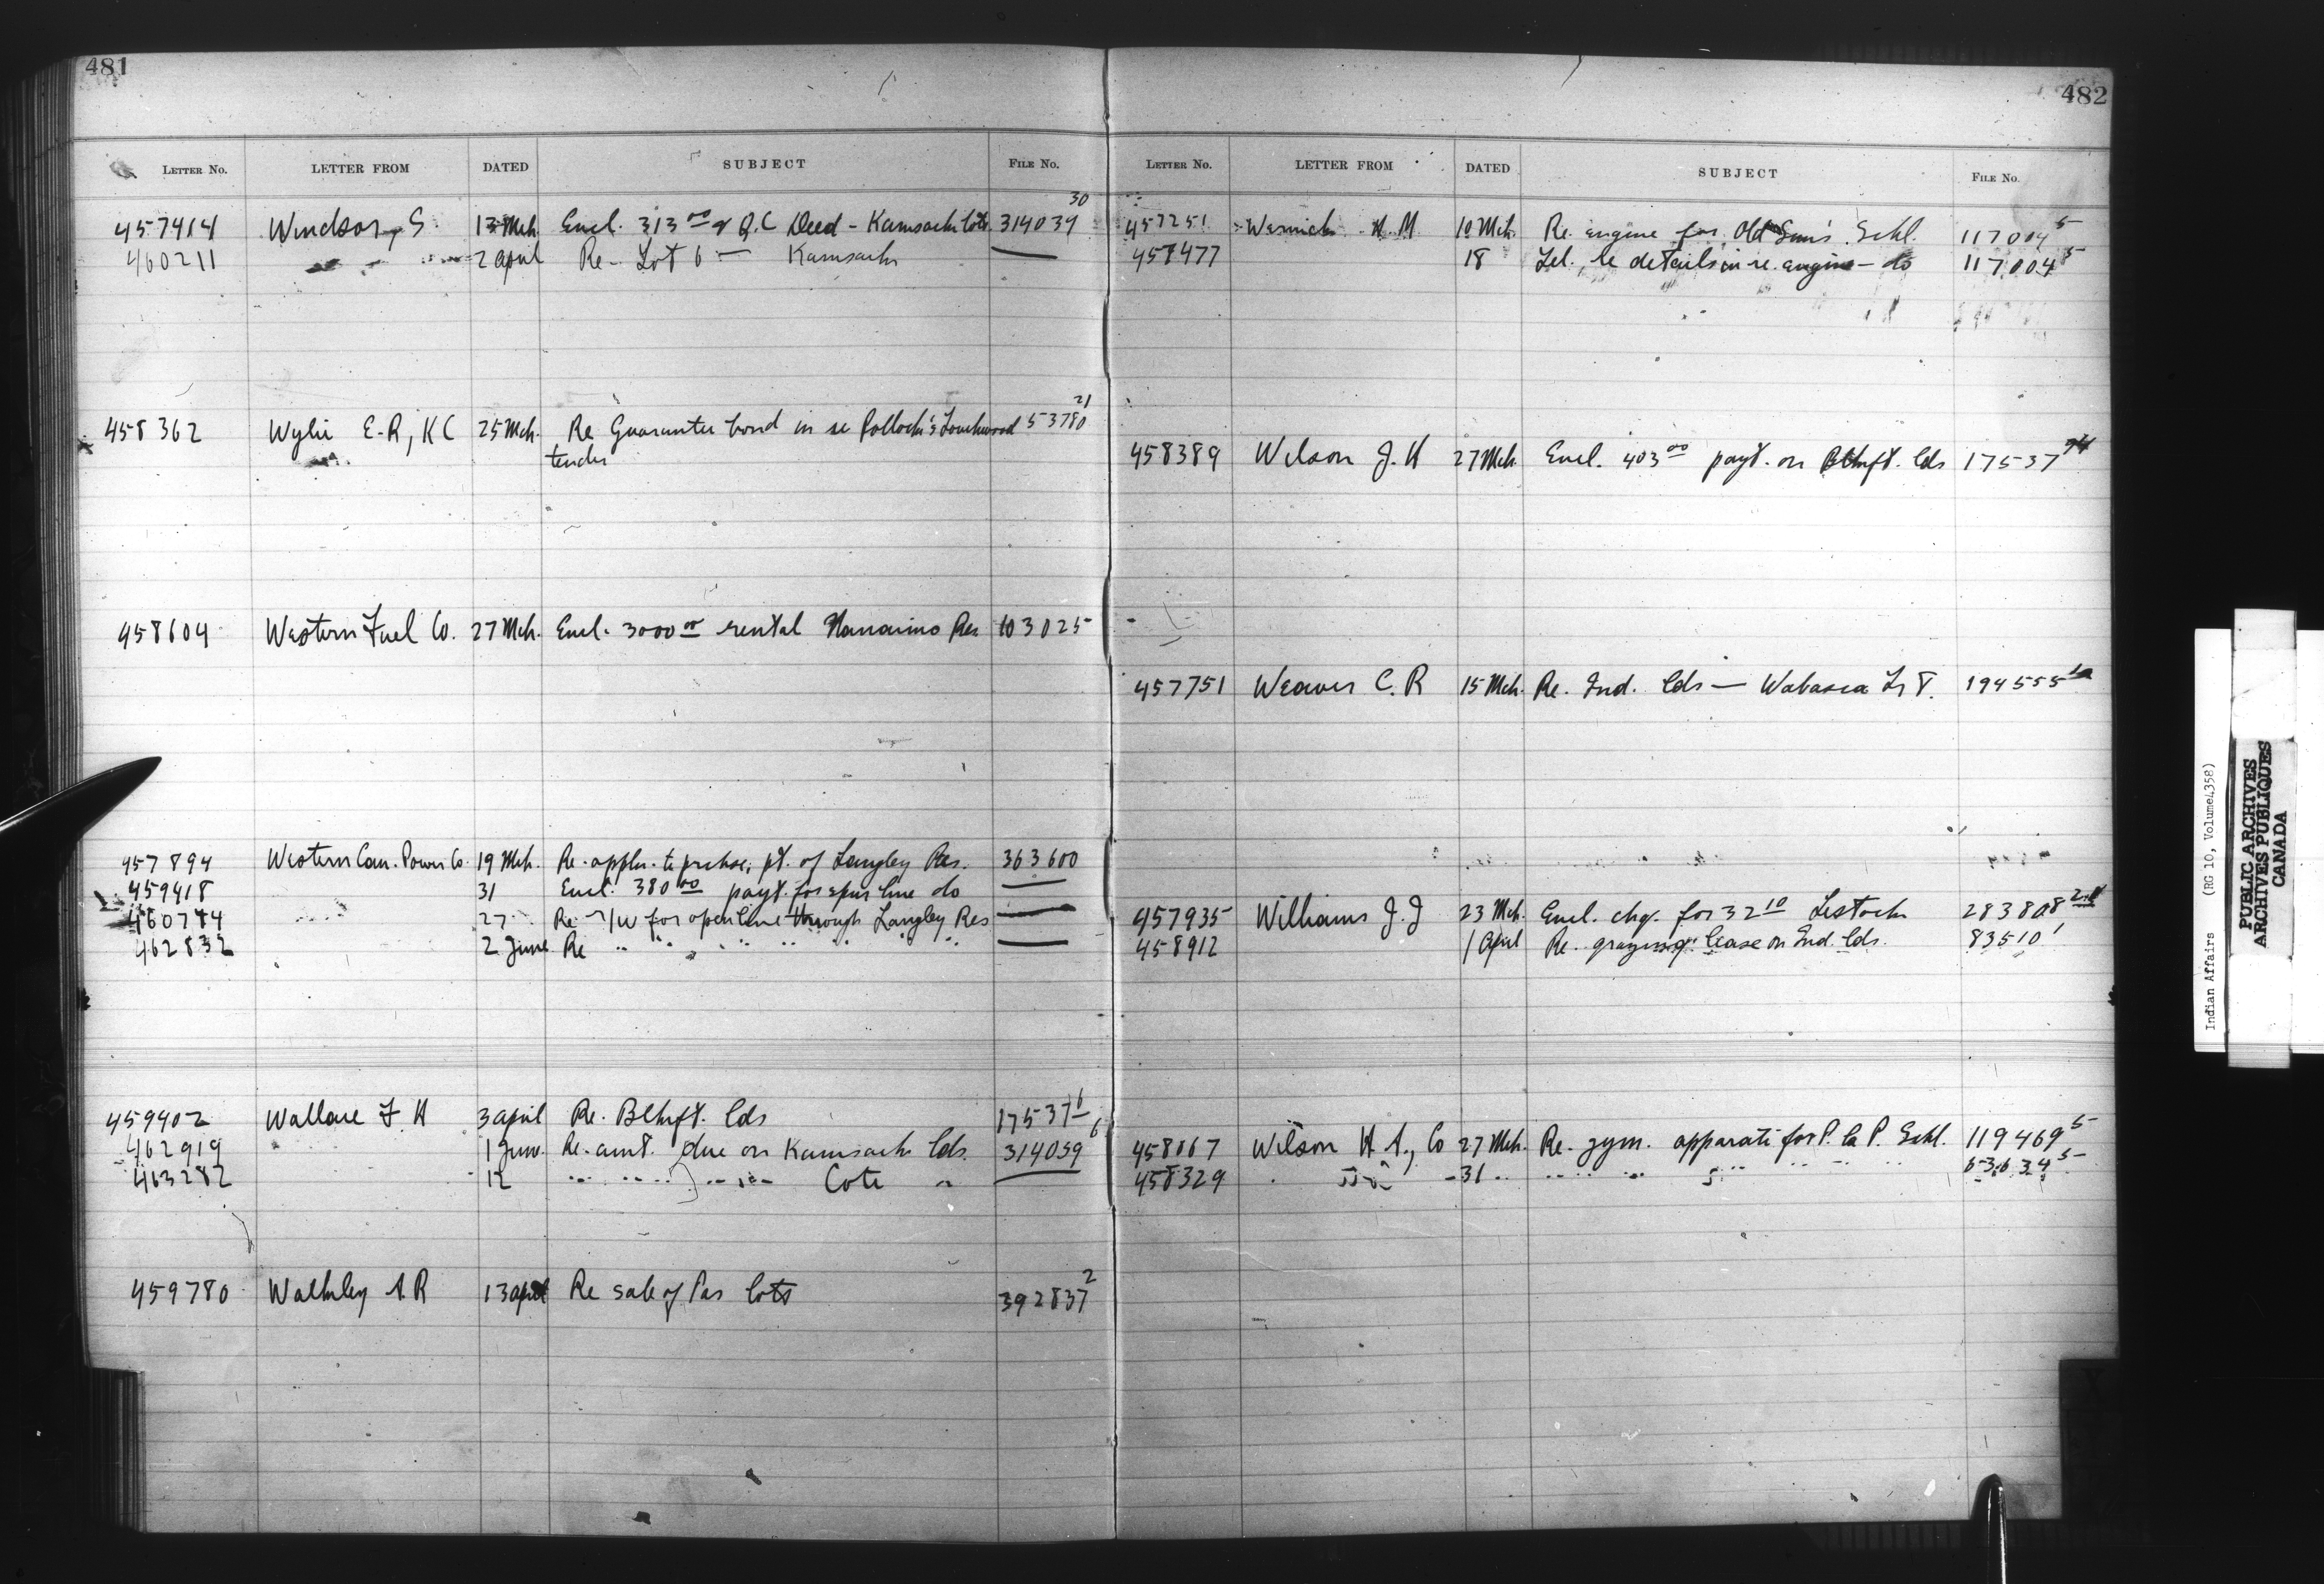 481
LETTER No. LETTER FROM DATED SUBJECT FILE No.
457414 Windsor, S 13 Mch. Encl. 313 00 & Q.C Deed - Kamsack lots 314039 30
460211 " " 2 April Re - Lot 6 — Kamsack —
458362 Wylie E.R, KC 25 Mch. Re Guarantee bond in re Pollock's Touchwood 53780 21
tender
458604 Western Fuel Co. 27 Mch. Encl. 3000 00 rental Nanaimo Res 103025
457894 Western Can. Power Co. 19 Mch. Re. appln. to prchse. pt. of Langley Res. 363600
459418 31 Encl. 380 00 payt. for spur line do —
460784 27 Re - /W for open line through Langley Res —
462832 2 June Re " " " " " " " —
459402 Wallace F H 3 April Re. Blkft. lds 17537 6
462919 " 1 June Re. amt. due on Kamsack lds. 314039 6
463282 12 " " " " " Cote " —
459780 Walkley A.R 13 April Re sale of Pas lots 392837 2
482
LETTER No. LETTER FROM DATED SUBJECT FILE No.
457251 Warnick A.M. 10 Mch. Re. engine for Old Sun's Schl. 117004 5
457477 18 Tel. re details in re. engine - do 117004 5
458389 Wilson J. H 27 Mch. Encl. 403 00 payt. on Blkft. lds 17537
457751 Weaver C. R 15 Mch. Re. Ind. lds — Wabasca 194555
457935 Williams J. J 23 Mch. Encl. chq. for 32 10 Lestock 283808
458912 1 April Re. grazing lease on Ind. lds. 83510 1
458067 Wilson H A., Co 27 Mch. Re. gym. apparati for P. la P. Schl. 119469 5
458329 " " 31 " " " " " " " "
Indian Affairs (RG 10, Volume 4358)
PUBLIC ARCHIVES
ARCHIVES PUBLIQUES
CANADA